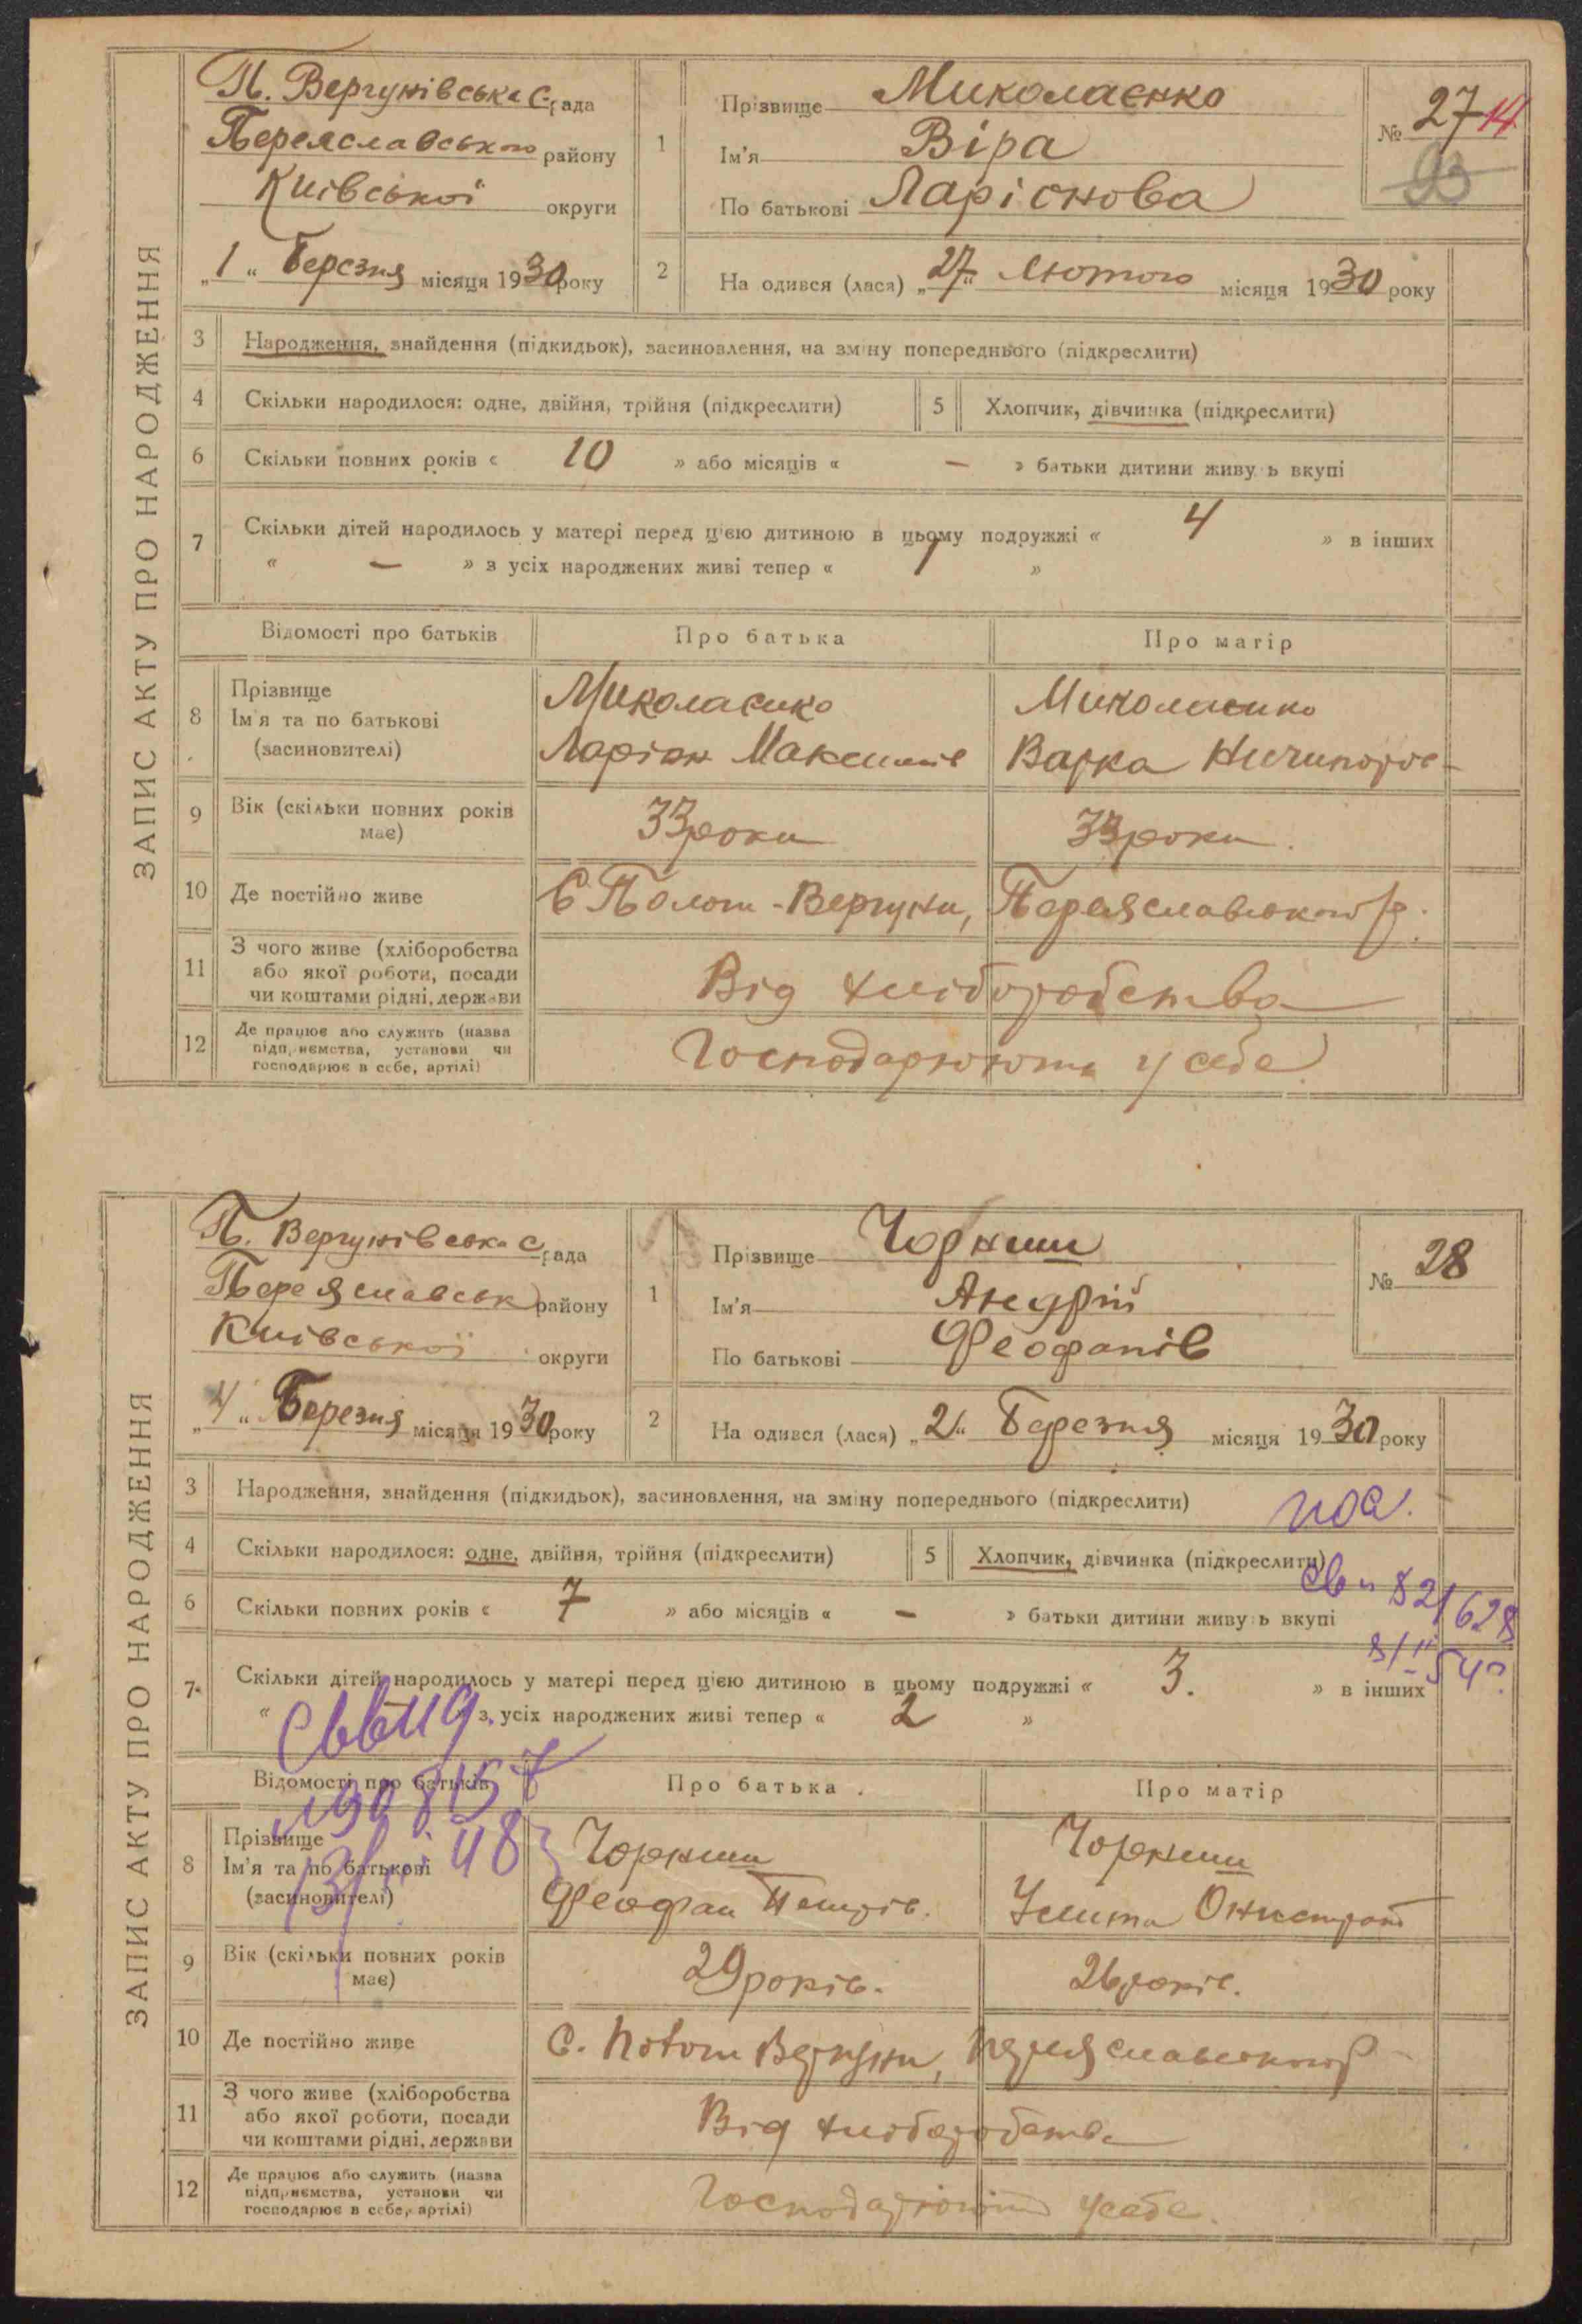 ЗАПИС АКТУ ПРО НАРОДЖЕННЯ
П. Вергунівська С. рада
Переяславського району
Київської округи
„1“ Березня місяця 1930 року
1 Прізвище Миколаєнко
Ім'я Віра
По батькові Ларіонова
№ 27 14
93
2 На одився (лася) „27“ Лютого місяця 1930 року
3 Народження, знайдення (підкидьок), засиновлення, на зміну попереднього (підкреслити)
4 Скільки народилося: одне, двійня, трійня (підкреслити) 5 Хлопчик, дівчинка (підкреслити)
6 Скільки повних років « 10 » або місяців « — » батьки дитини живу ь вкупі
7 Скільки дітей народилось у матері перед цією дитиною в цьому подружжі « 4 » в інших
« — » з усіх народжених живі тепер « 1 »
Відомості про батьків Про батька Про матір
8 Прізвище
Ім'я та по батькові
(засиновителі)
Миколаєнко Миколаєнко
Ларіон Максимів Варка Ничипоров-
9 Вік (скільки повних років має) 33 роки 33 роки.
10 Де постійно живе С Полот-Вергуни, Переяславського р.
11 З чого живе (хліборобства або якої роботи, посади чи коштами рідні, держави Від хліборобства
12 Де працює або служить (назва підприємства, установи чи господарює в себе, артілі) Господарюють у себе
ЗАПИС АКТУ ПРО НАРОДЖЕННЯ
П. Вергунівська С. рада
Переяславськ району
Київської округи
„4“ Березня місяця 1930 року
1 Прізвище Чорниш
Ім'я Андрій
По батькові Феофанів
№ 28
2 На одився (лася) „2“ Березня місяця 1930 року
3 Народження, знайдення (підкидьок), засиновлення, на зміну попереднього (підкреслити)
4 Скільки народилося: одне, двійня, трійня (підкреслити) 5 Хлопчик, дівчинка (підкреслити)
6 Скільки повних років « 7 » або місяців « — » батьки дитини живу ь вкупі
7 Скільки дітей народилось у матері перед цією дитиною в цьому подружжі « 3. » в інших
« з усіх народжених живі тепер « 2 »
Відомості про батьків Про батька Про матір
8 Прізвище
Ім'я та по батькові
(засиновителі)
Чорниш Чорниш
Феофан Петрів.
9 Вік (скільки повних років має) 29 років. 26 років.
10 Де постійно живе С. Полот Вергуни, Переяславського р
11 З чого живе (хліборобства або якої роботи, посади чи коштами рідні, держави Від хліборобства
12 Де працює або служить (назва підприємства, установи чи господарює в себе, артілі) Господарюють у себе.